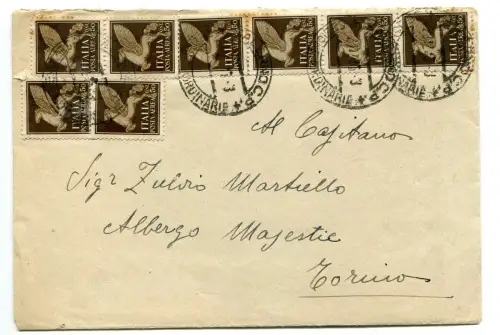 ITALIA ITALIA ITALIA ITALIA ITALIA ITALIA
POSTA AEREA POSTA AEREA POSTA AEREA POSTA AEREA POSTA AEREA POSTA AEREA
ORDINARIE C.P. ORDINARIE C.P.
ITALIA ITALIA
POSTA AEREA POSTA AEREA
Al Capitano
Sigr Zulvio Martiello
Albergo Majestie
Torino